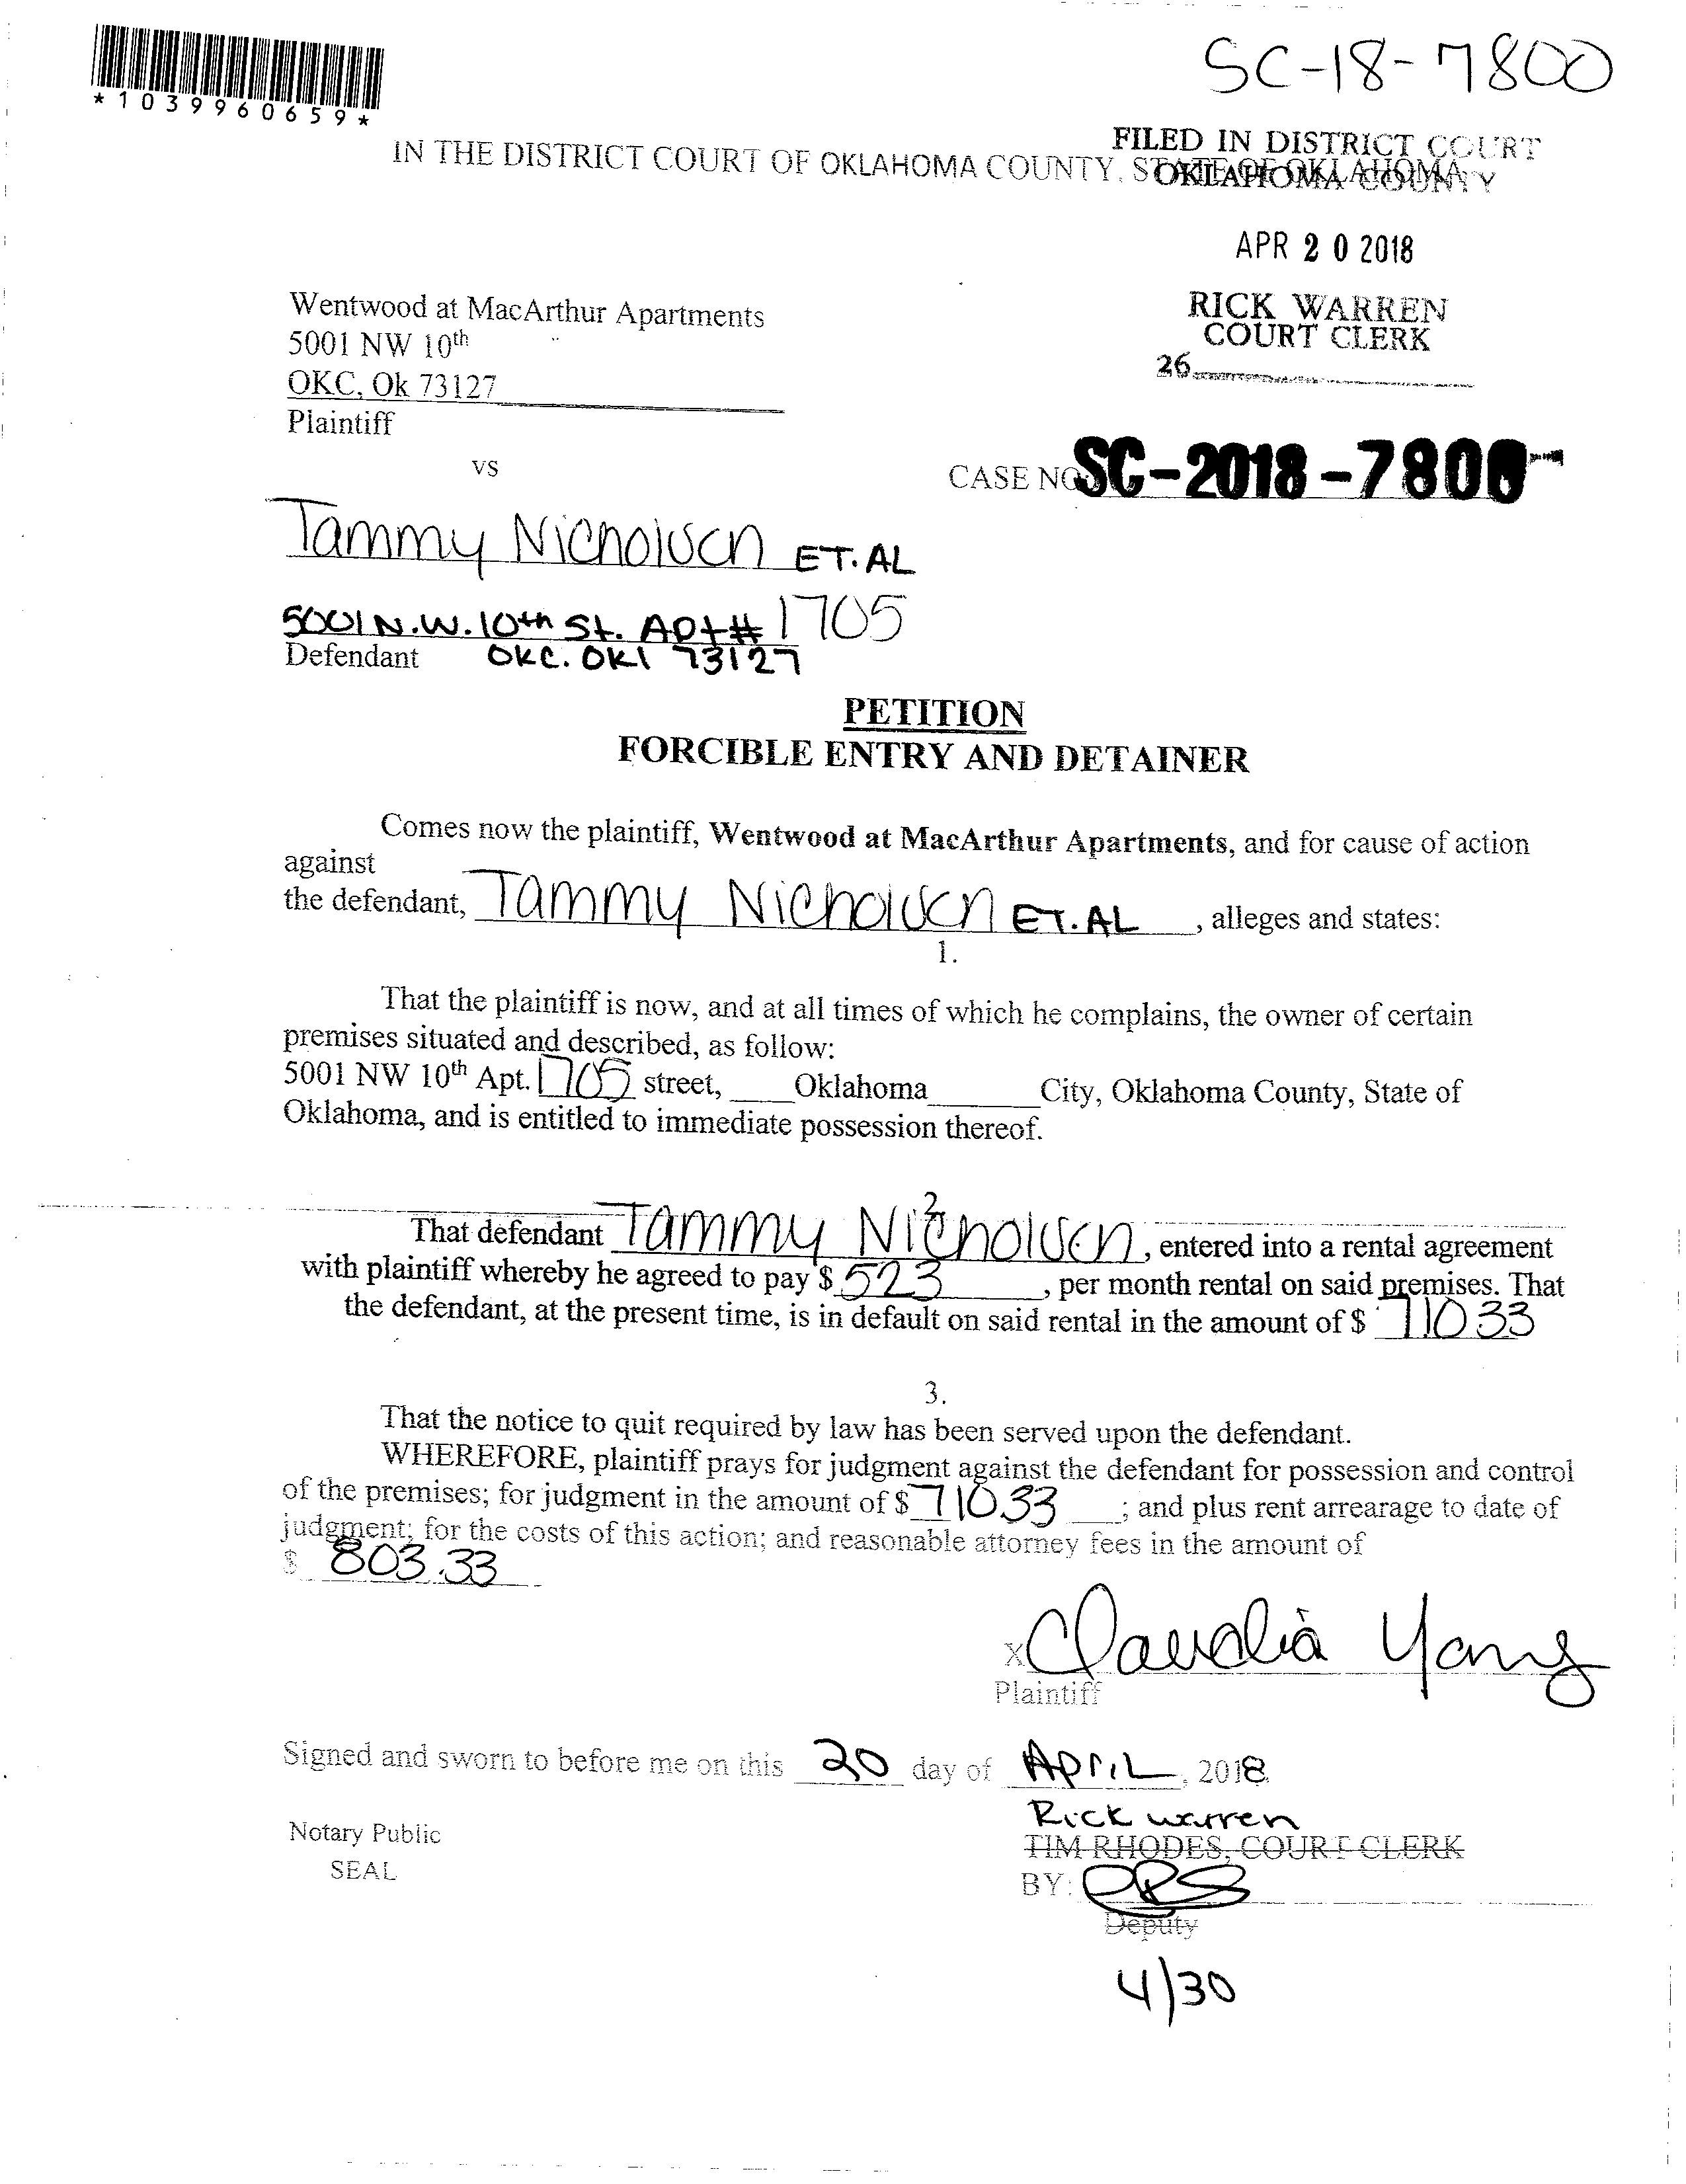 SC-18-7800
*1039960659*
FILED IN DISTRICT COURT
OKLAHOMA COUNTY
IN THE DISTRICT COURT OF OKLAHOMA COUNTY, STATE OF OKLAHOMA
APR 20 2018
RICK WARREN
COURT CLERK
26
Wentwood at MacArthur Apartments
5001 NW 10th
OKC, Ok 73127
Plaintiff
vs
CASE NO. SC-2018-7800
Tammy Nicholson ET.AL
5001 N.W. 10th St. Apt# 1705
Defendant OKC. OKl 73127
PETITION
FORCIBLE ENTRY AND DETAINER
Comes now the plaintiff, Wentwood at MacArthur Apartments, and for cause of action
against
the defendant, Tammy Nicholson ET.AL, alleges and states:
1.
That the plaintiff is now, and at all times of which he complains, the owner of certain
premises situated and described, as follow:
5001 NW 10th Apt. 1705 street, Oklahoma City, Oklahoma County, State of
Oklahoma, and is entitled to immediate possession thereof.
2
That defendant Tammy Nicholson, entered into a rental agreement
with plaintiff whereby he agreed to pay $ 523, per month rental on said premises. That
the defendant, at the present time, is in default on said rental in the amount of $ 710 33
3.
That the notice to quit required by law has been served upon the defendant.
WHEREFORE, plaintiff prays for judgment against the defendant for possession and control
of the premises; for judgment in the amount of $ 710.33; and plus rent arrearage to date of
judgment; for the costs of this action; and reasonable attorney fees in the amount of
$ 803.33
x Claudia Yang
Plaintiff
Signed and sworn to before me on this 20 day of April, 2018
Rick warren
Notary Public
TIM RHODES, COURT CLERK
SEAL
BY:
Deputy
4/30